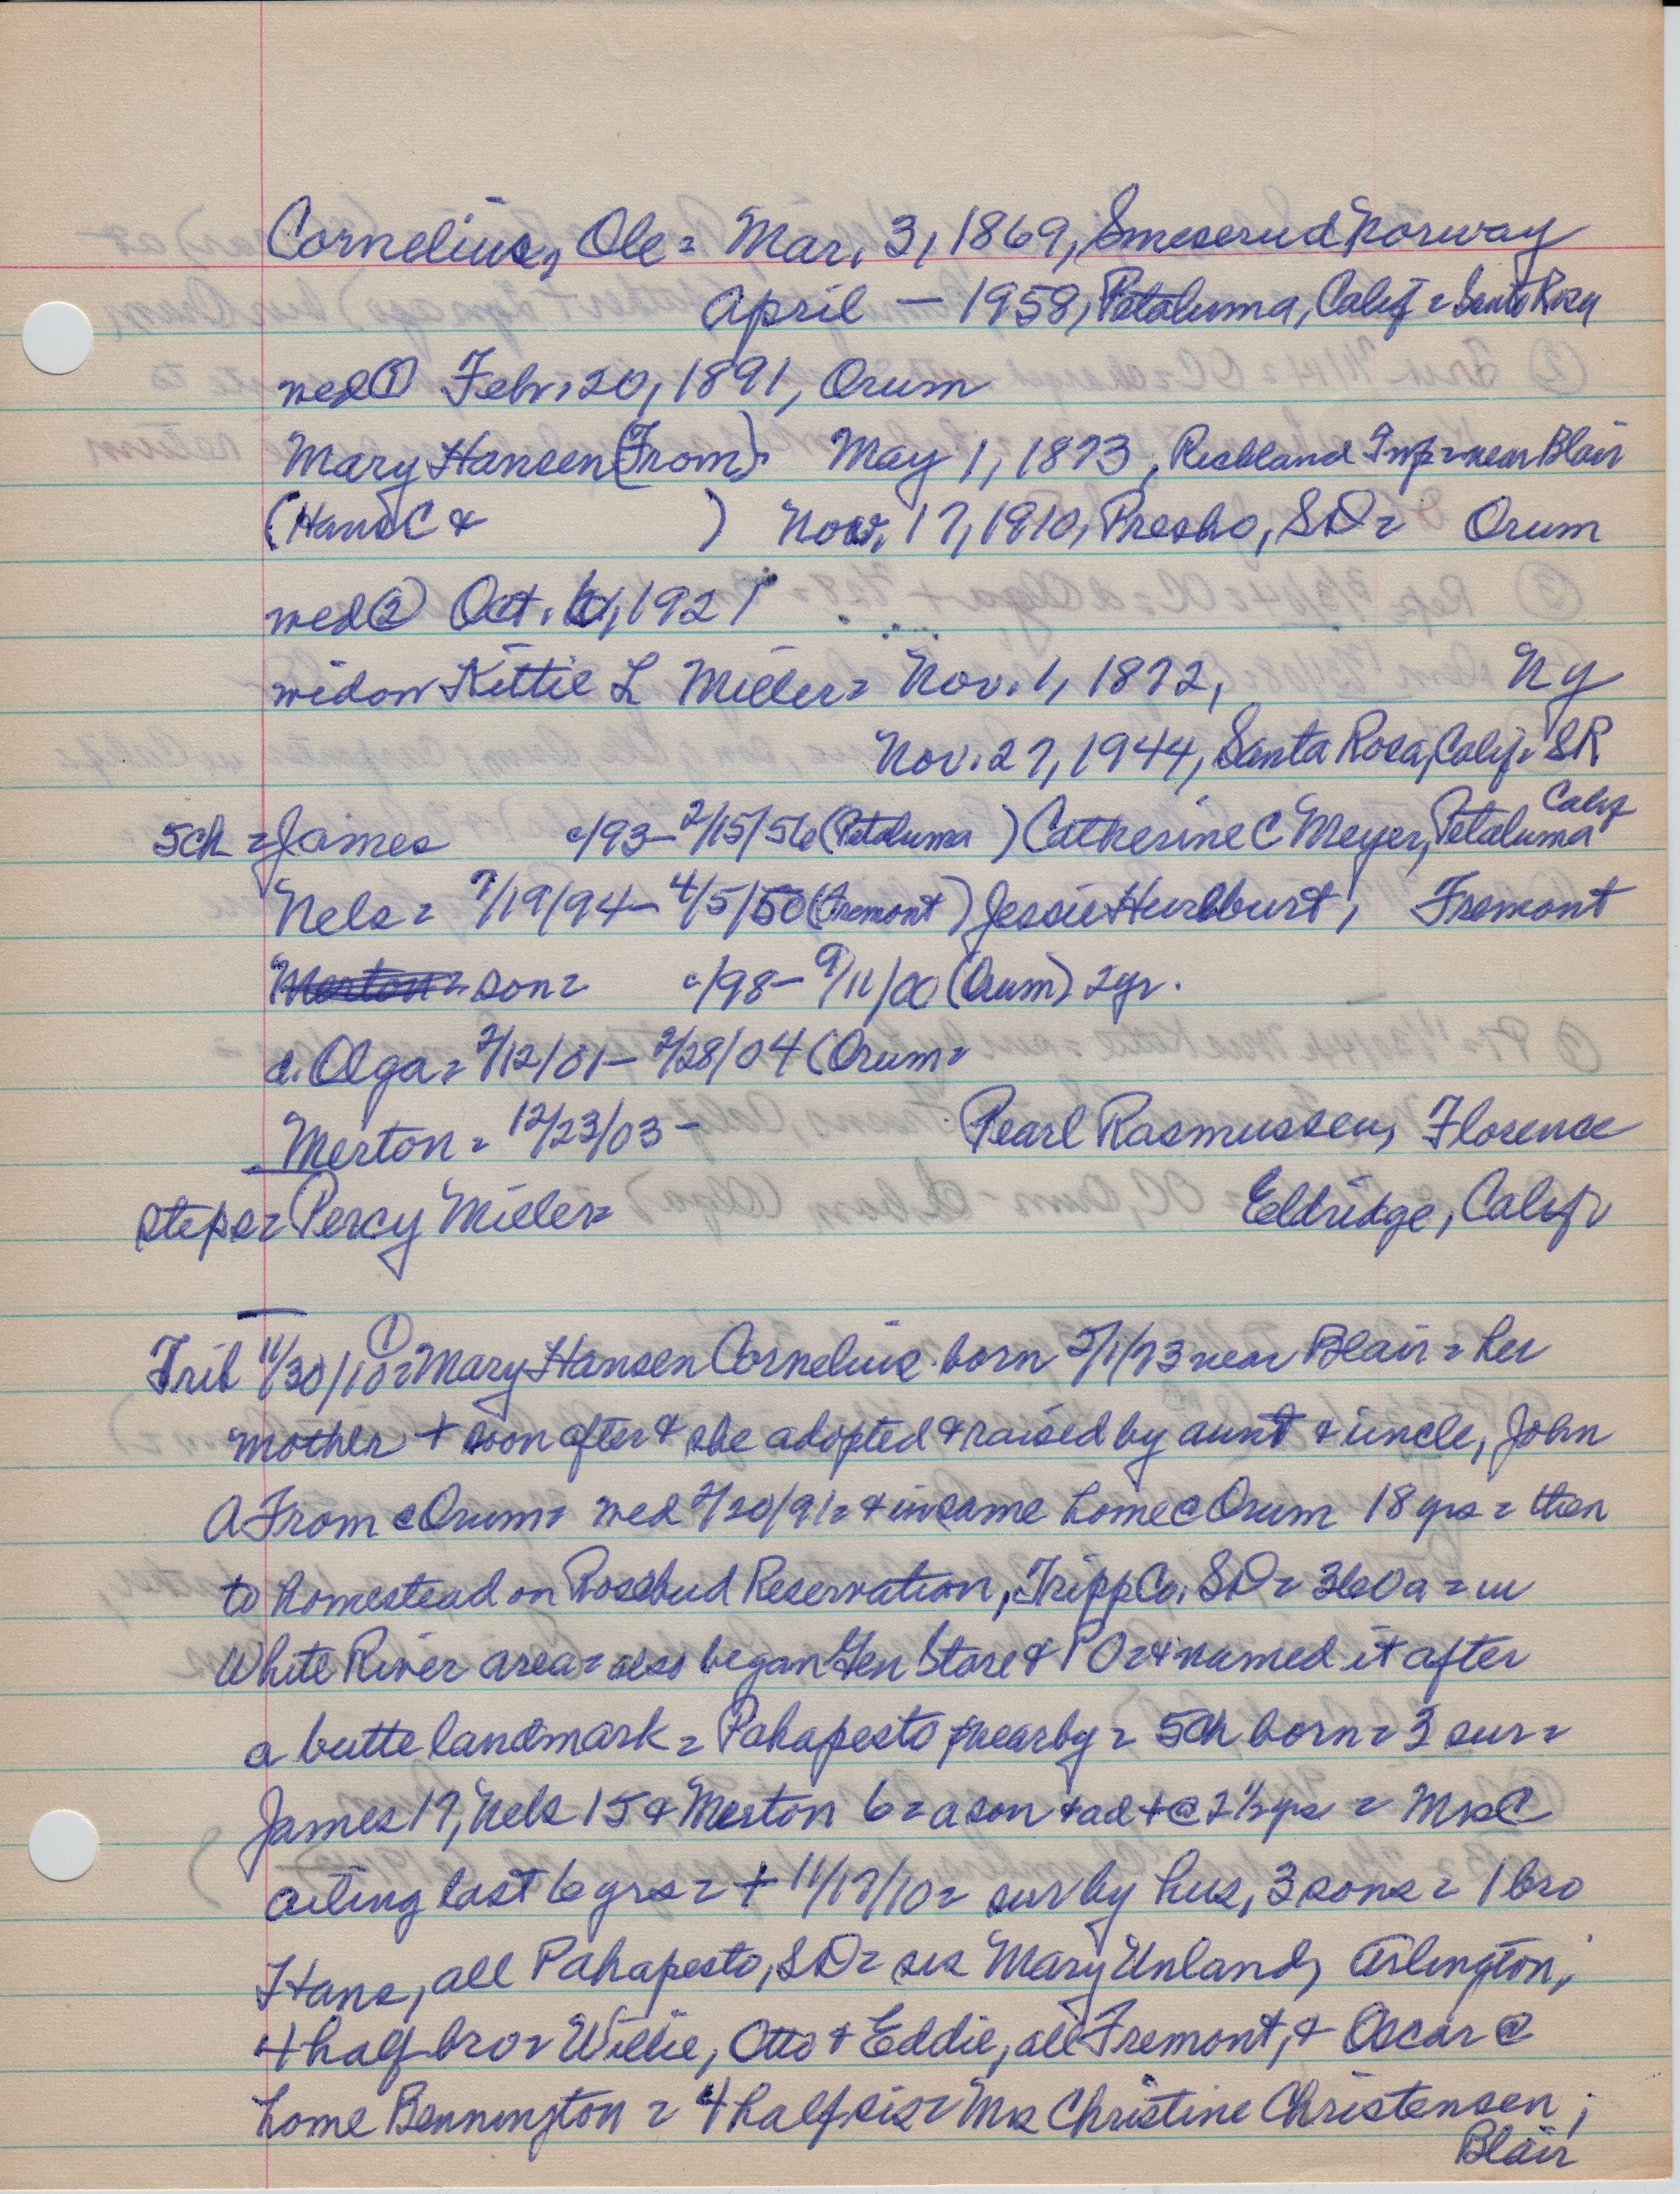 Cornelius, Ole = Mar. 3, 1869, Smeserud Norway
April — 1958, Petaluma, Calif = Santa Rosa
wed ① Febr. 20, 1891, Orum
Mary Hansen (From) May 1, 1873, Richland Twp = near Blair
(Hans C & ) Nov. 17, 1910, Presho, SD = Orum
wed ② Oct. 1921
widow Kittie L Miller = Nov. 1, 1872, NY
Nov. 27, 1944, Santa Rosa, Calif = SR
Calif
5ch = James c/93 – 2/15/56 (Petaluma ) Catherine C Meyer, Petaluma
Nels = 7/19/94 – 4/5/50 (Fremont ) Jessie Hurlburt, Fremont
Merton = son = c/98 – 9/11/00 (Orum) 2yr.
d. Olga = 2/12/01 – 2/28/04 (Orum =
Merton = 12/23/03 – Pearl Rasmussen, Florence
steps = Percy Miller = Eldridge, Calif
①
Trib 11/30/10 = Mary Hansen Cornelius born 5/1/73 near Blair = her
mother + soon after & she adopted & raised by aunt & uncle, John
A From @ Orum = wed 2/20/91 = & in same home @ Orum 18 yrs = then
to homestead on Rosebud Reservation, Tripp Co, SD = 360a = in
White River area = also began Gen Store & PO = & named it after
a butte landmark = Pahapesto nearby = 5ch born = 3 sur =
James 17, Nels 15 & Merton 6 = a son & a d + @ 2½ yrs = Mrs C
ailing last 6 yrs = + 11/17/10 = sur by hus, 3 sons = 1 bro
Hans, all Pahapesto, SD = sis Mary Unland, Arlington;
4 half bro = Willie, Otto & Eddie, all Fremont, & Oscar @
home Bennington = 4 half sis = Mrs Christine Christensen,
Blair